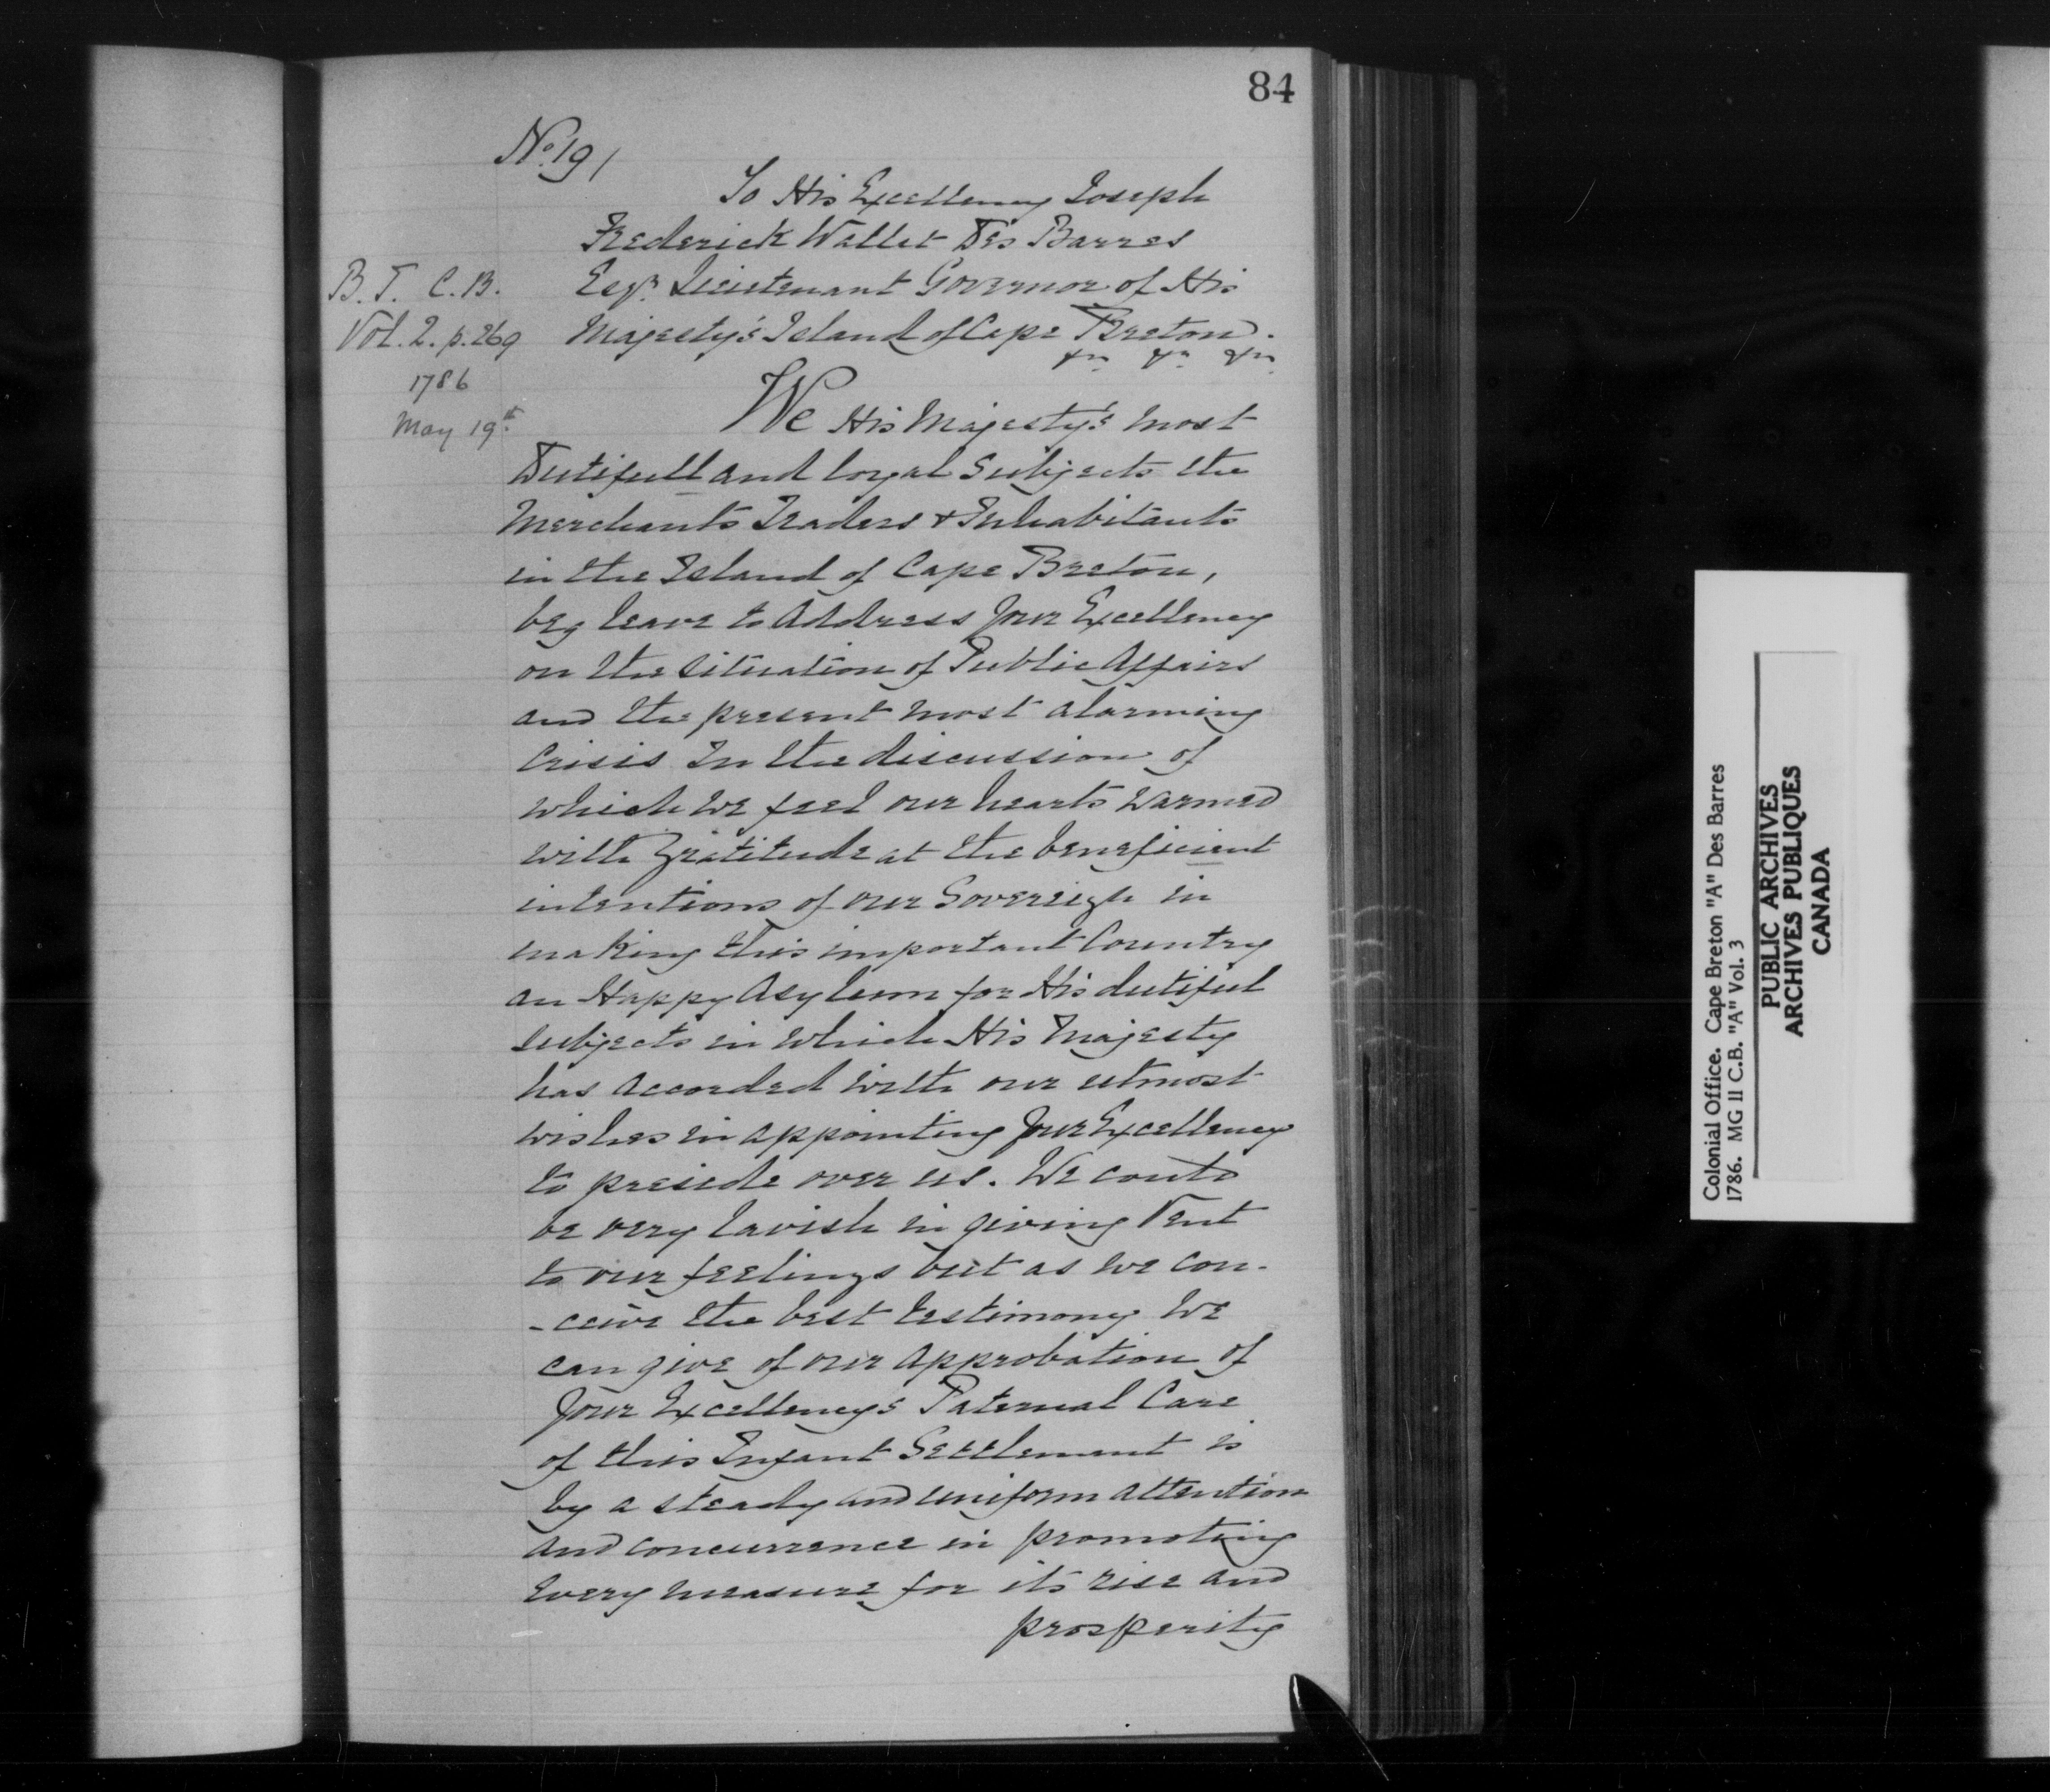 84
No. 19/
To His Excellency Joseph
Frederick Wallet Des Barres
B. T. C.B.
Esqr. Lieutenant Governor of His
Vol. 2. p. 269
Majesty's Island of Cape Breton.
1786
May 19th
We His Majesty's most
Dutifull and loyal Subjects the
Merchants Traders & Inhabitants
in the Island of Cape Breton,
beg leave to Address Your Excellency
on the situation of Public Affairs
and the present most alarming
Crisis In the discussion of
which we feel our hearts warmed
with Gratitude at the beneficient
intentions of our Sovereign in
making this important Country
an Happy Asylum for His dutiful
subjects in which His Majesty
has accorded with our utmost
wishes in appointing Your Excellency
to preside over us. We could
be very lavish in giving Vent
to our feelings but as we con-
-ceive the best testimony we
can give of our Approbation of
Your Excellency's Paternal Care
of this Infant Settlement is
by a steady and uniform attention
and concurrence in promoting
every measure for its rise and
prosperity
Colonial Office. Cape Breton "A" Des Barres
1786. MG II C.B. "A" Vol. 3
PUBLIC ARCHIVES
ARCHIVES PUBLIQUES
CANADA